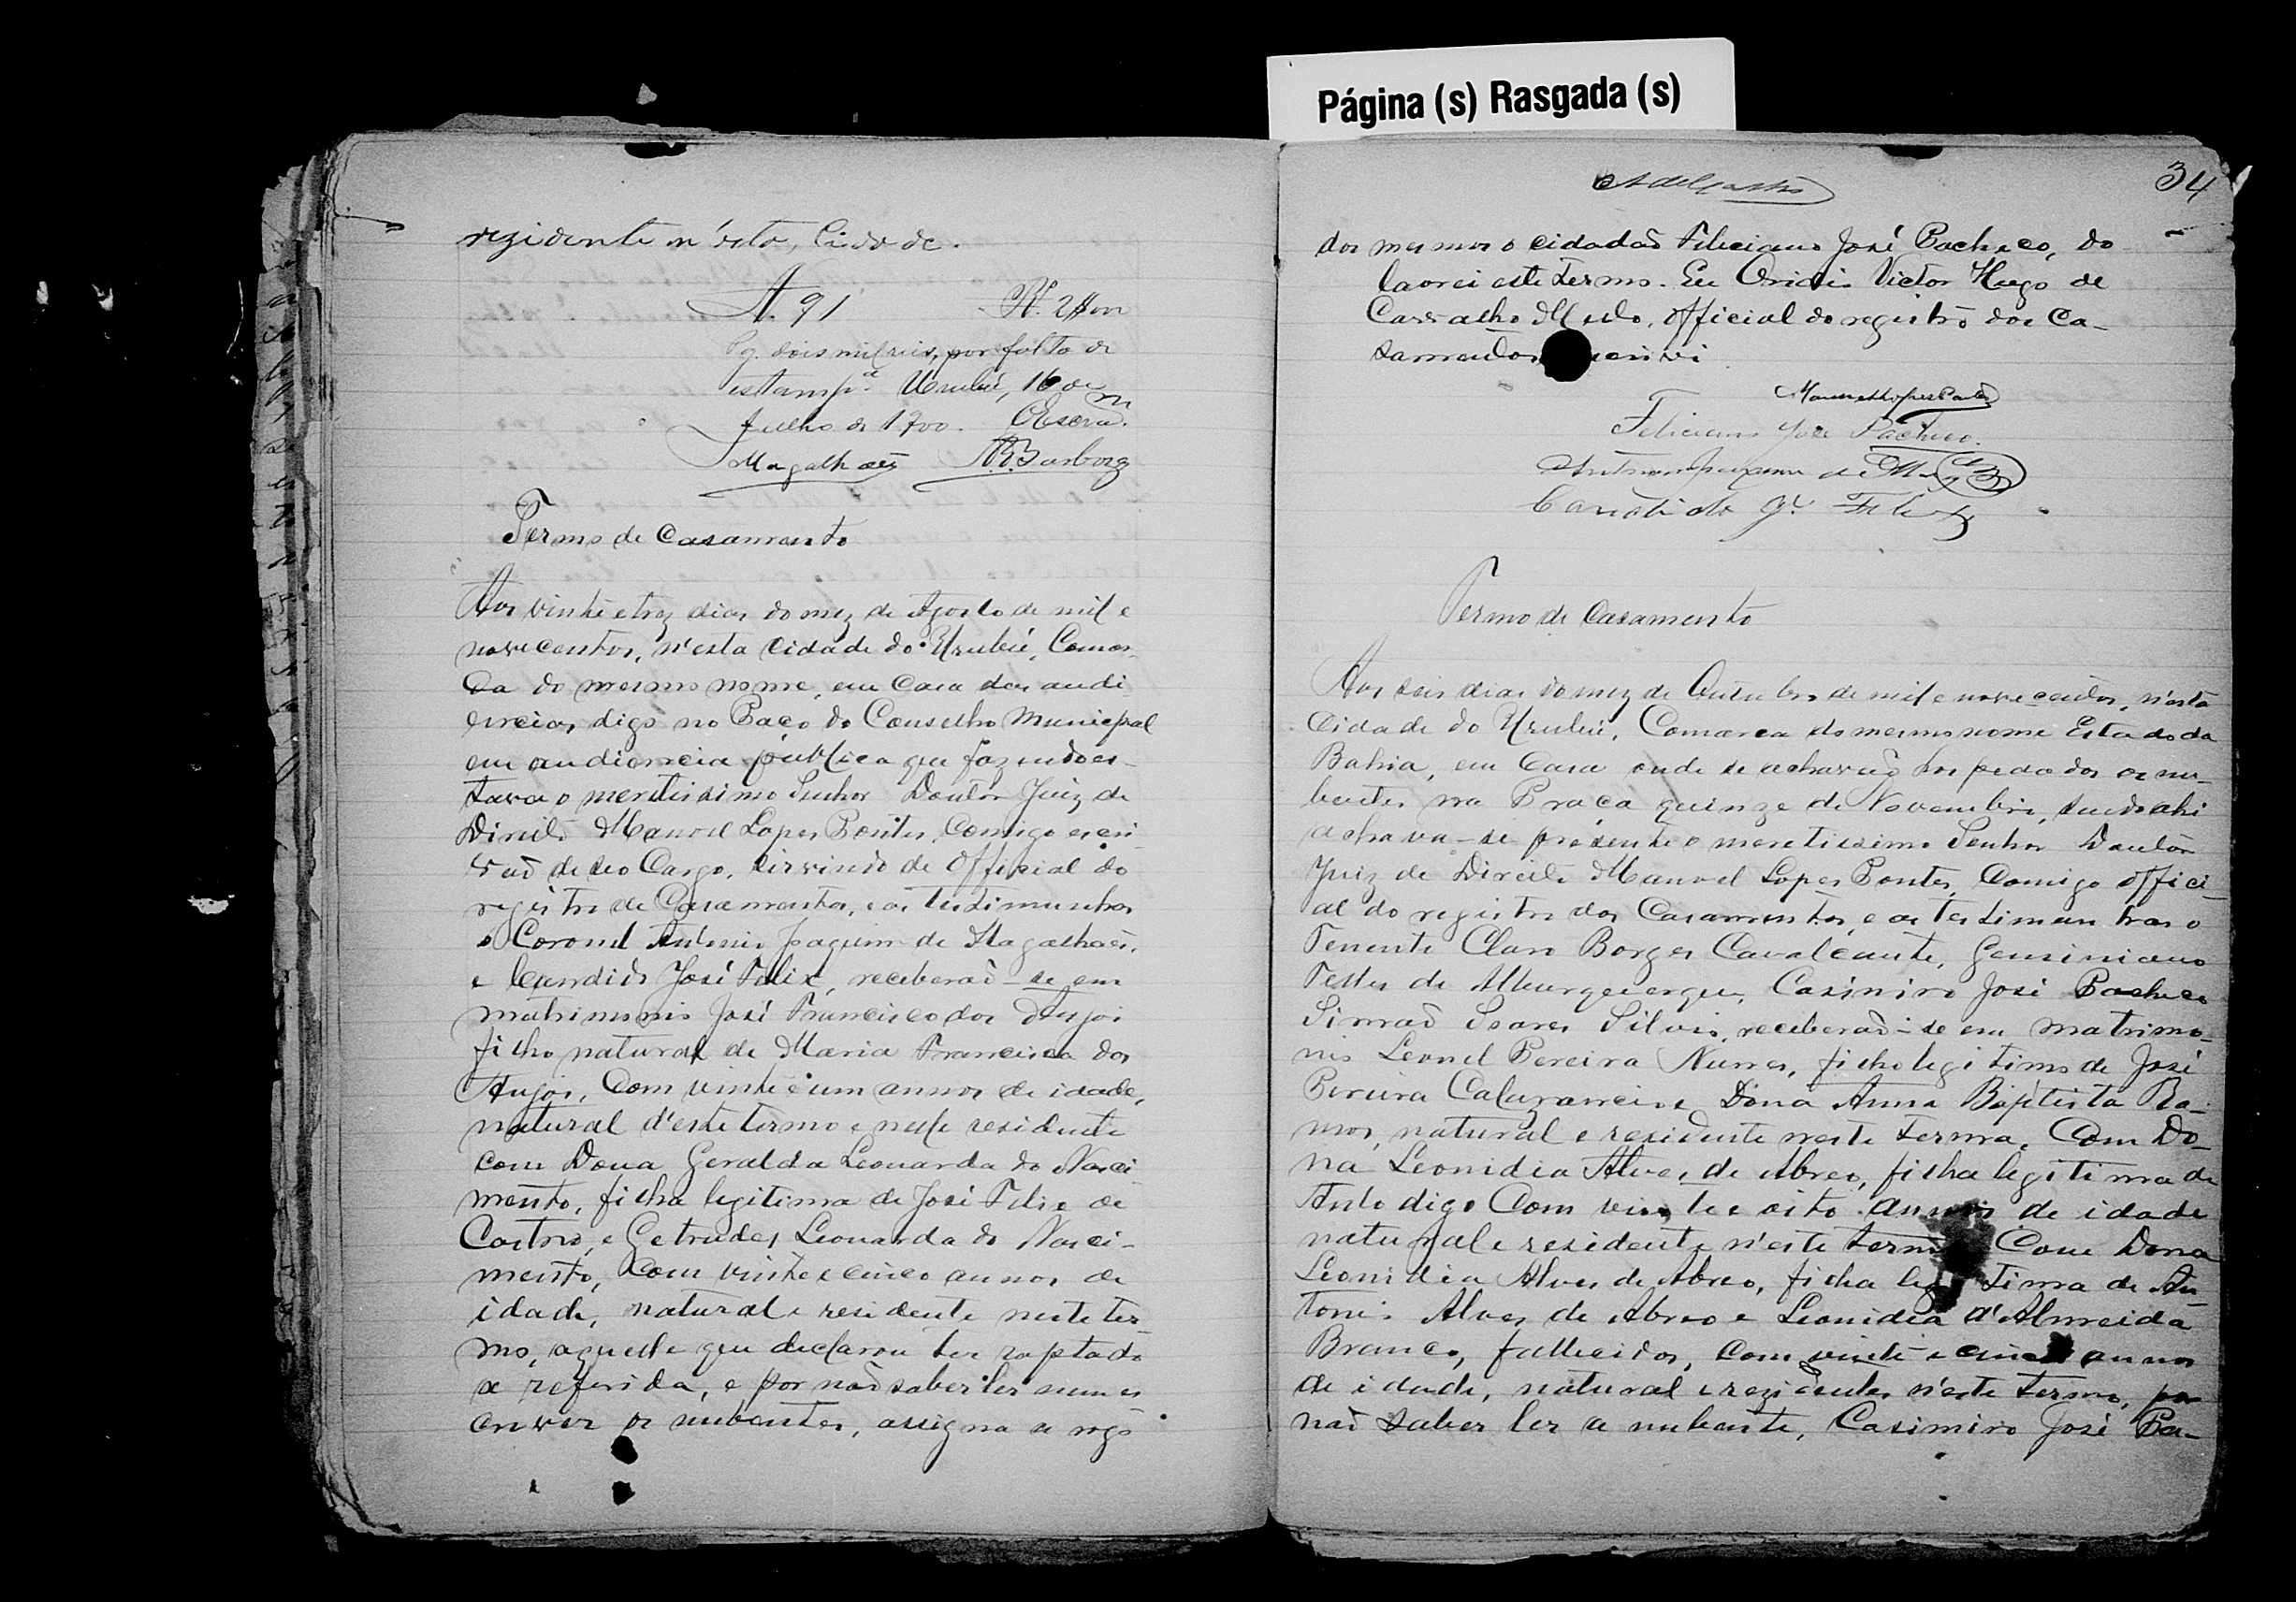 Página (s) Rasgada (s)
rezidente n'esta Cidade.
N. 91 R. 2$000
Pg. dois mil reis, por falta de
estampª. Urubú, 16 de
Julho de 1900. O Escrᵐ.
Magalhães A.B. Barboza
Termo de Casamento
Aos vinte e trez dias do mez de Agosto de mil e
novecentos, n'esta Cidade do Urubú, Comar-
ca do mesmo nome, em Casa das audi
encias, digo no Paço do Conselho Municipal
em audiencia publica que fazendo es-
tava o meritissimo Senhor Doutor Juiz de
Direito Manoel Lopes Pontes, Comigo escri-
vaõ de seo Cargo, sirvindo de Official do
registro de Casamentos, e as testimunhas
o Coronel Antonio Joaquim de Magalhaes,
e Candido José Felix, receberaõ-se em
matrimonio José Francisco dos Anjos
filho natural de Maria Francisca dos
Anjos, Com vinte e um annos de idade,
natural d'este termo e nelle residente
com Dona Geralda Leonarda do Nasci
mento, filha legitima de José Felix de
Castro, e Getrudes Leonarda do Nasci-
mento, Com vinte e cinco annos de
idade, natural e residente neste ter-
mo, aquelle que declarou ter raptado
a referida, e por naõ saber ler nem es
crever os nubentes, assigna a rogo
34
dos mesmos o cidadaõ Feliciano José Pacheco, do
lavrei este termo. Eu Victor Hugo de
Carvalho Mello, official do registro dos Ca-
samentos escrivi
Manoel Lopes Pontes
Feliciano José Pacheco.
Antonio Joaquim de Mag
Candido Jé. Felix
Termo de Casamento
Aos seis dias do mez de Outubro de mil e novecentos, n'esta
Cidade do Urubú, Comarca do mesmo nome Estado da
Bahia, em Casa onde se achavaõ hospedados os nu-
bentes na Praça quinze de Novembro, sendo ahi
achava-se presente o meretissimo Senhor Doutor
Juiz de Direito Manoel Lopes Pontes, Comigo offici-
al do registro dos Casamentos, e as testimunhas o
Tenente Claro Borges Cavalcante, Geminiano
Telles de Alburquerque, Casimiro José Pacheco
Simaõ Soares Silva, receberaõ-se em matrimo-
nio Leonel Pereira Nunes, filho legitimo de José
Pereira e Dona Anna Baptista Ra-
mos, natural e residente neste termo, Com Do-
na Leonidia Alves de Abreo, filha legitima de
Anto digo Com vinte e oito annos de idade
natural e residente n'este termo Com Dona
Leonidia Alves de Abreo, filha legitima de An-
tonio Alves de Abreo e Leonidia d'Almeida
Branco, fallecidos, com vinte e cinco annos
de idade, natural e rezidentes n'este termo, por
naõ saber ler a nubente, Casimiro José Pa-